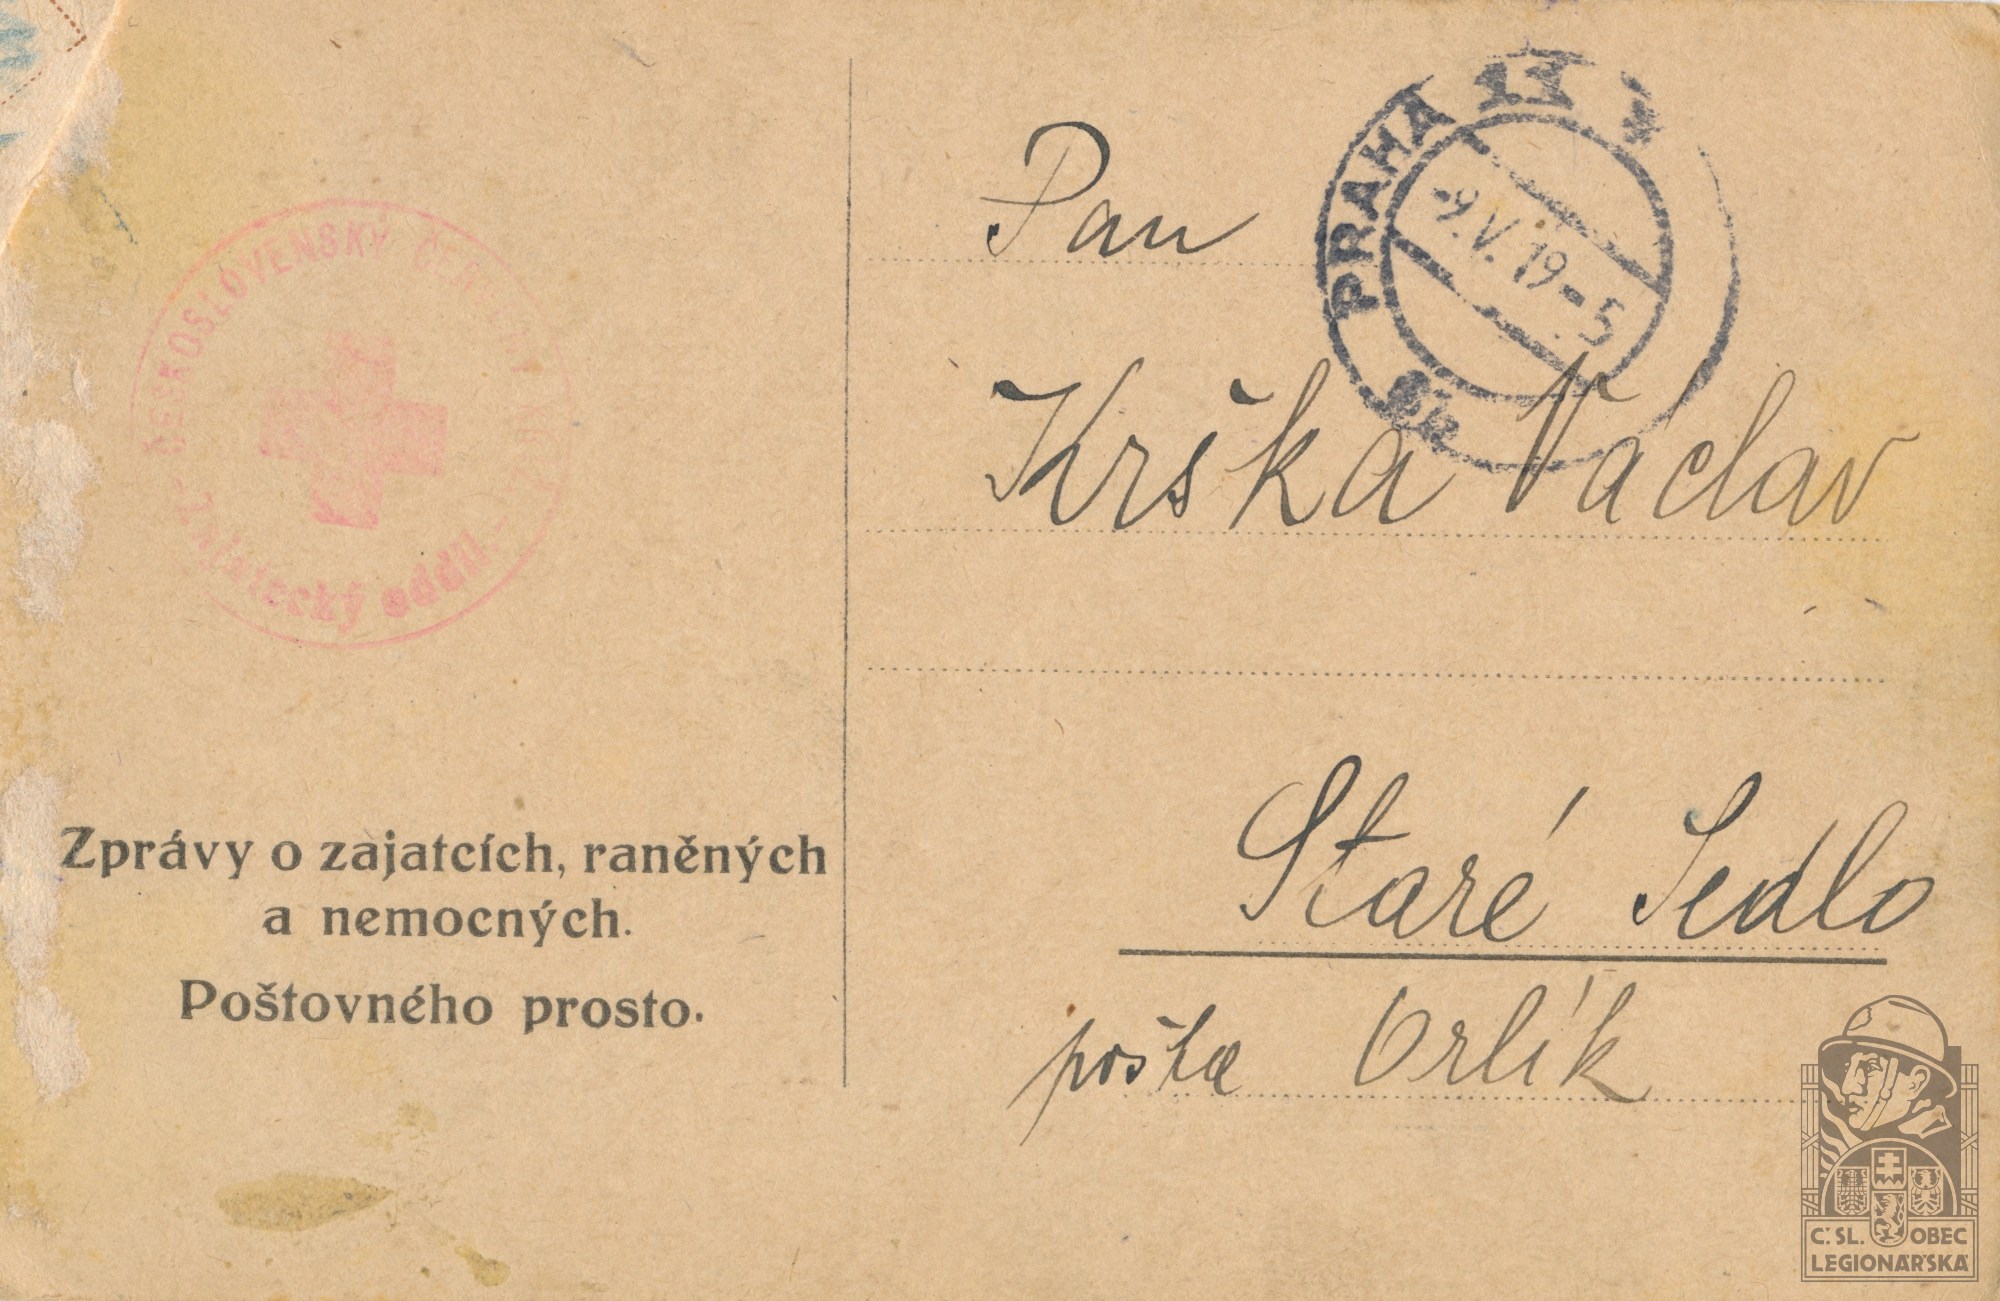 ČESKOSLOVENSKÝ ČERVENÝ KŘÍŽ
Zajatecký oddíl.
Zprávy o zajatcích, raněných
a nemocných.
Poštovného prosto.
PRAHA 11
-9.V.19-5
Pan
Krška Václav
Staré Sedlo
pošta Orlík
Č.SL. OBEC
LEGIONÁŘSKÁ